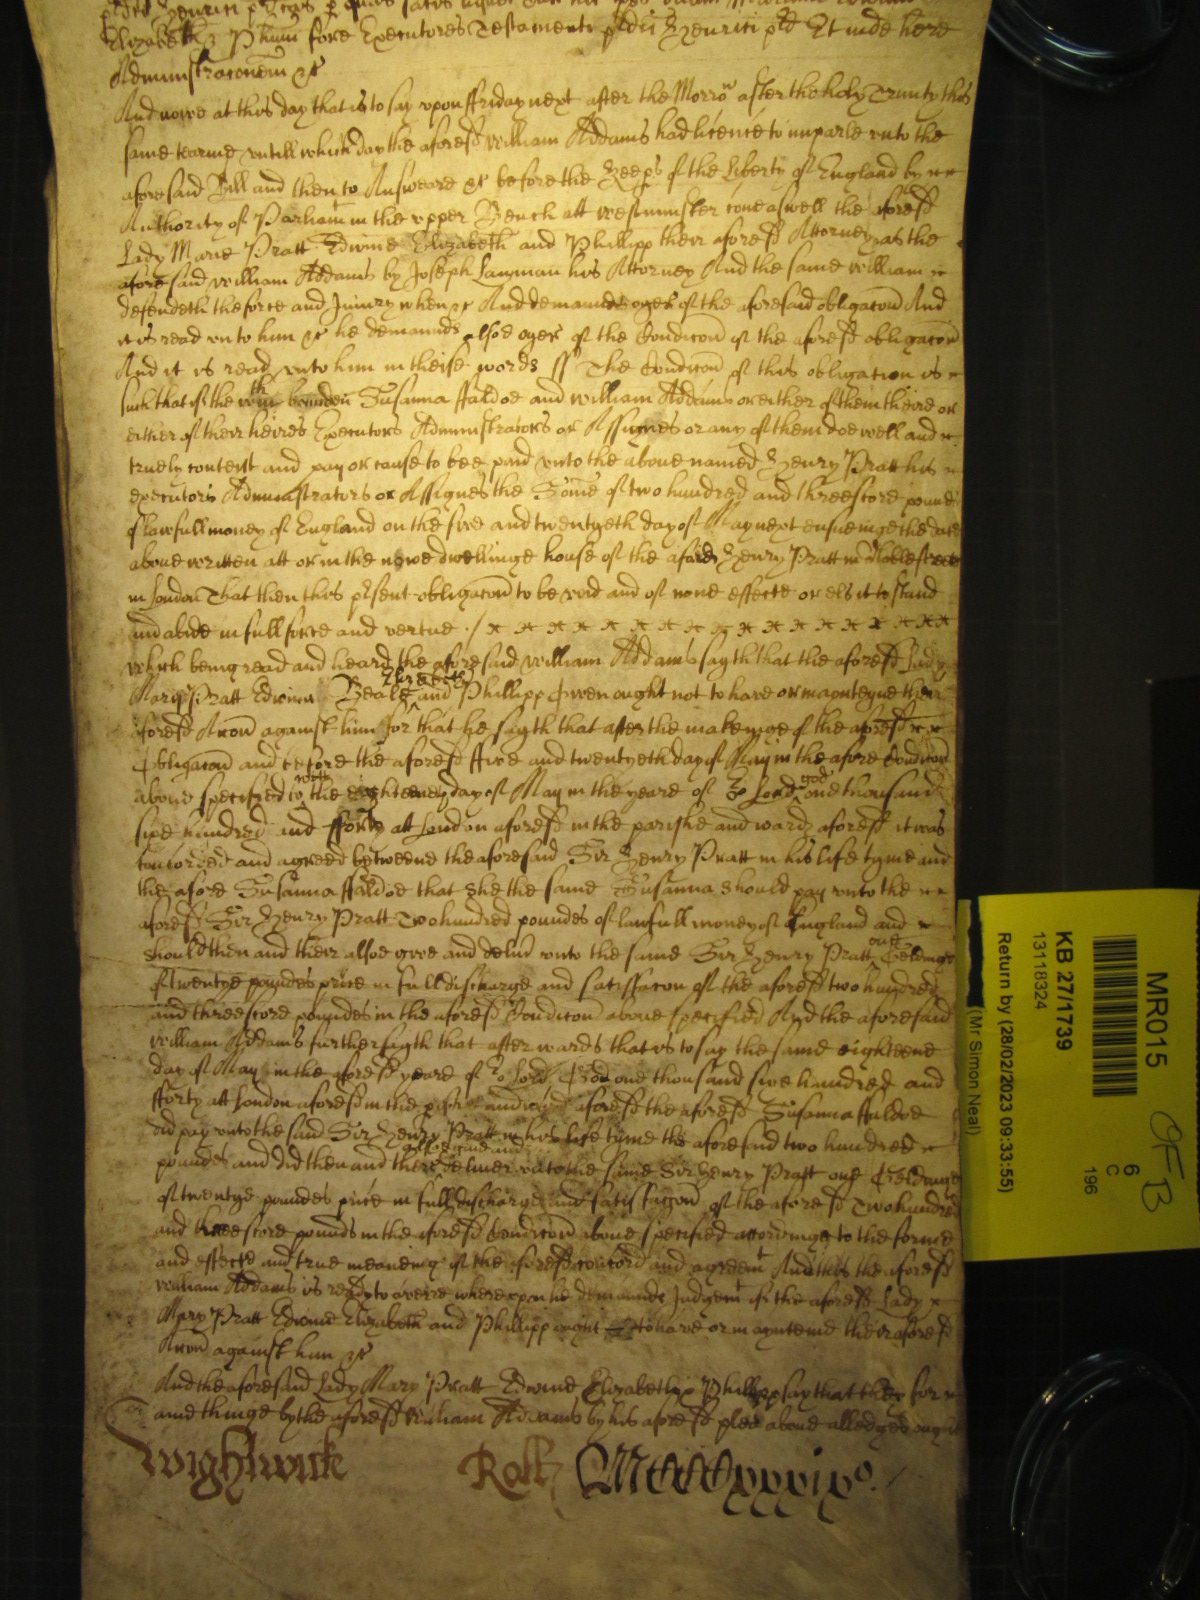 Elizabeth & Phum fore Executores Testamenti pdci Henrici pd Et inde here
Administraconem &c
And nowe at this day that is to say upon ffriday next after the Morrow after the holy Trinity this
same tearme untill which day the aforesd William Addams had licence to imparle unto the
aforesaid Bill and then to Answeare &c before the Keeps of the Liberty of England by
Authority of Parliamt in the upper Bench att Westminster come aswell the aforesd
Lady Marie Pratt Edwine Elizabeth and Phillipp their aforesd Attorney as the
aforesaid William Addams by Joseph Layman his Attorney And the same William
defendeth the force and Injury when &c And demaunds oyer of the aforesaid obligacon And
it is read unto him &c he demaunds alsoe oyer of the Condicon of the aforesd obligacon
And it is read unto him in theise words ss The Condicon of this obligation is
such that if the wthin bounden Susanna ffaldoe and William Addams or either of them theire or
either of their heires Executors Administrators or Assignes or any of them doe well and
truely content and pay or cause to bee paid unto the above named Henry Pratt his
executors Administrators or Assignes the Some of two hundred and threescore pounds
of lawfull money of England on the five and twentyeth day of May next ensueinge the date
above written att or in the nowe dwellinge house of the afores Henry Pratt in Noblestreete
in London That then this psent obligacon to be void and of none effecte or els it to stand
and abide in full force and vertue ./
which being read and heard the aforesaid William Addams sayth that the aforesd Lady
Mary Pratt Edwine Beale Elizabeth and Phillipp Gwen ought not to have or maynteyne their
aforesd Accon against him for that he sayth that after the makeinge of the aforesd
Obligacon and before the aforesd ffive and twentyeth day of May in the afore Condicon
above specified to witt the eighteene day of May in the yeare of or Lord god one thousand
sixe hundred and fforty att London aforesd in the parishe and ward aforesd it was
concorded and agreed betweene the aforesaid Sir Henry Pratt in his life tyme and
the afore Susanna ffaldoe that she the same Susanna should pay unto the
aforesd Sir Henry Pratt Two hundred poundes of lawfull money of England and
should then and their alsoe give and deliver unto the same Sir Henry Pratt one Geldinge
of twentye poundes price in full discharge and satisfaccon of the aforesd two hundred
and threescore poundes in the aforesd Condicon above specified And the aforesaid
William Addams further sayth that afterwards that is to say the same eighteene
day of May in the aforesd yeare of or Lord God one thousand sixe hundred and
fforty att London aforesd in the parishe and ward aforesd the aforesd Susanna ffaldoe
did pay unto the said Sir Henry Pratt in his life tyme the aforesaid two hundred
poundes and did then and there alsoe give and deliver unto the same Sir Henry Pratt one Geldinge
of twentye poundes price in full discharge and satisfaccon of the aforesd Two hundred
and threescore pounds in the aforesd Condicon above specified accordinge to the forme
and effecte and true meaneing of the aforesd concord and agreemt And this the aforesd
William Addams is ready to averre whereupon he demaunds Judgemt if the aforesd Lady
Mary Pratt Edwine Elizabeth and Phillipp ought to have or maynteine their aforesd
Accon against him &c
And the aforesaid Lady Mary Pratt Edwine Elizabeth & Phillipp say that they for
anie thinge by the aforesd William Addams by his aforesd plea above alledged ought
Wightwick Roll MCCCCxxxixo.
MR015
KB 27/1739
13118324
Return by (28/02/2023 09:33:55)
(Mr Simon Neal)
6
C
196
OFB